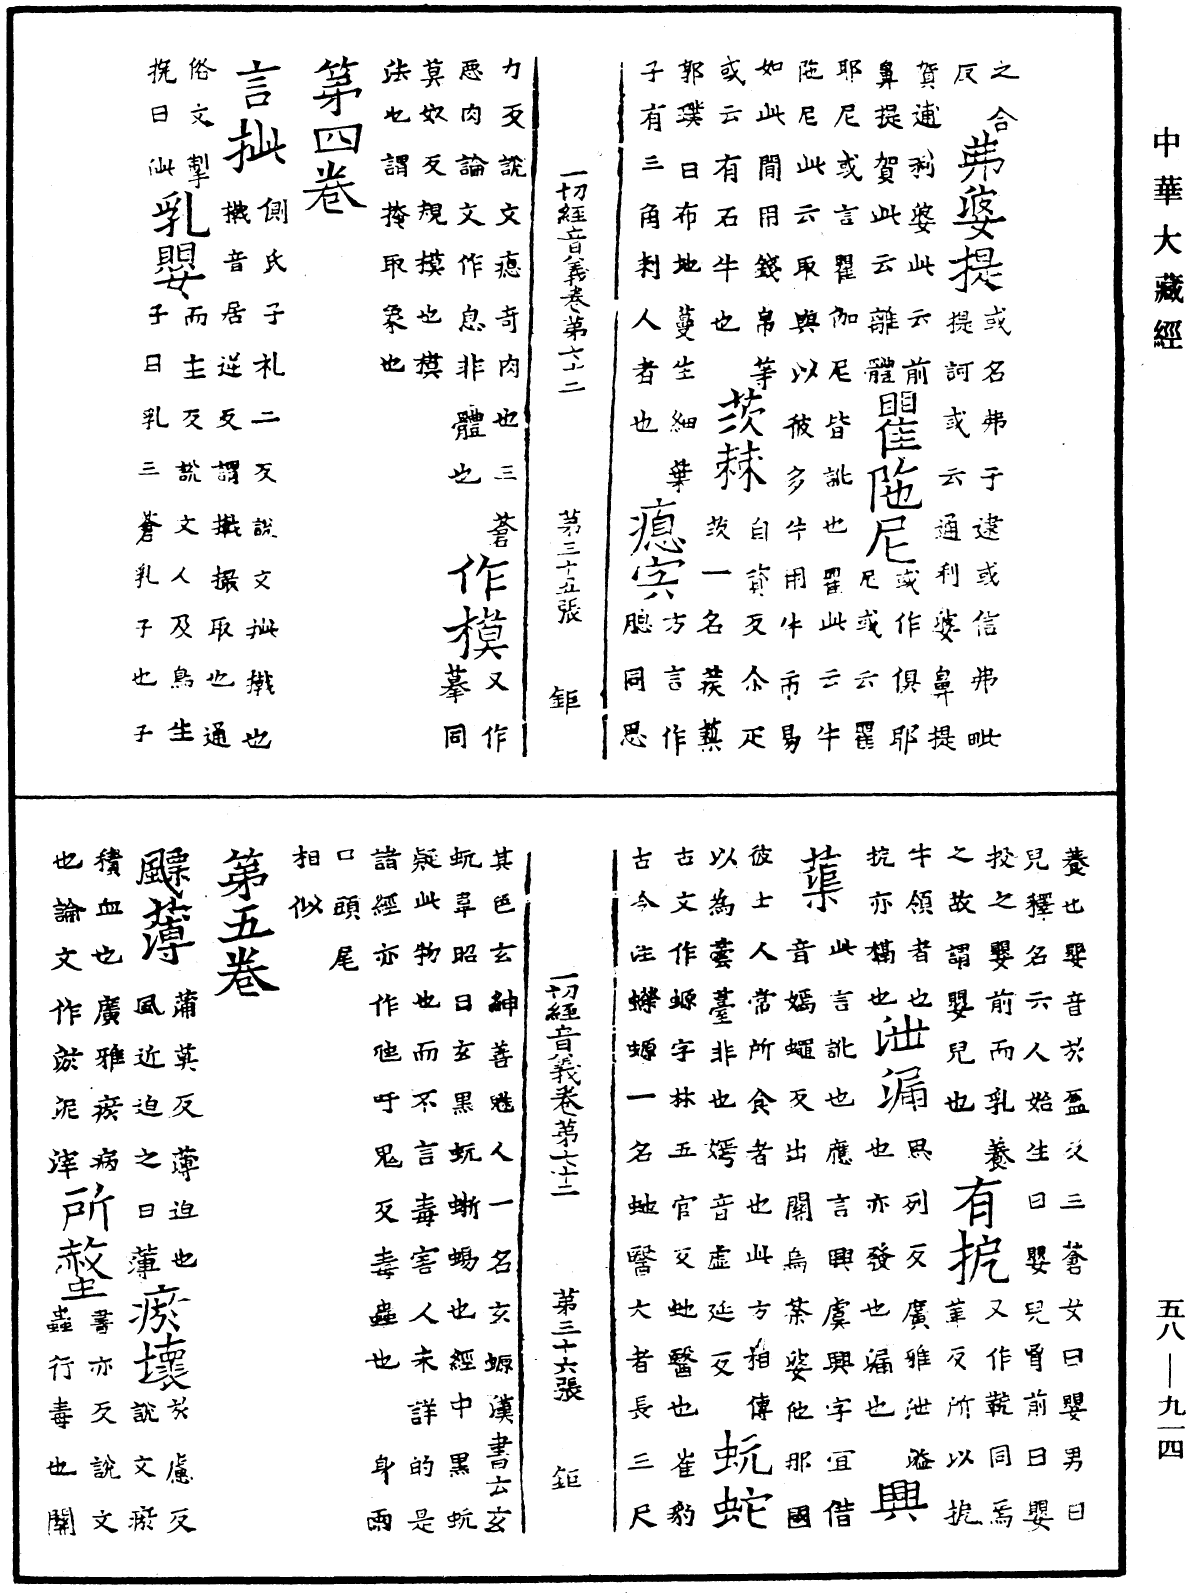 中華大藏經
之合
反
弗婆提
或名弗于逮或信弗毗
提訶或云通利婆鼻提
賀逋利婆此云前
鼻提賀此云離體
瞿陁尼
或作俱耶
尼或云瞿
耶尼或言瞿伽尼皆訛也瞿此云牛
陁尼此云取與以彼多牛用牛市易
如此間用錢帛等
或云有石牛也
茨棘
自資反尒疋
茨一名蒺䔧
郭璞曰布地蔓生細葉
子有三角刺人者也
瘜宍
方言作
同思
一切經音義卷第七十二 第三十五張 鉅
力反說文瘜奇肉也三蒼
悪肉論文作息非體也
作模
又作
摹同
莫奴反規模也模
法也謂掩取象也
第四卷
言㧗
側氏子札二反說文㧗撠也
撠音居逆反謂撠撮取也通
俗文掣
挽曰㧗
乳嬰
而主反說文人及鳥生
子曰乳三蒼乳子也子
養也嬰音於盈反三蒼女曰嬰男曰
兒釋名云人始生曰嬰兒胷前曰嬰
投之嬰前而乳養
之故謂嬰兒也
有扼
又作軶同焉
革反所以扼
牛領者也
扼亦槅也
泄漏
思列反廣雅泄溢
也亦發也漏也
興
蕖
此言訛也應言興虞興字宜借
音嫣蠅反出闍烏荼娑他那國
彼土人常所食者也此方相傳
以為蕓薹非也嫣音虛延反
蚖蛇
古文作螈字林五官反虵醫也崔豹
古今注蠑螈一名虵醫大者長三尺
一切經音義卷第七十二 第三十六張 鉅
其色玄紺善魅人一名玄螈漢書云玄
蚖韋昭曰玄黑蚖蜥蜴也經中黑蚖
疑此物也而不言毒害人未詳的是
諸經亦作虺呼鬼反毒蟲也身兩
口頭尾
相似
第五卷
飄薄
蒲莫反薄迫也
風近迫之曰薄
瘀壞
於慮反
說文瘀
積血也廣雅瘀病
也論文作淤泥滓
所螫
書亦反說文
蟲行毒也關
五八—九一四